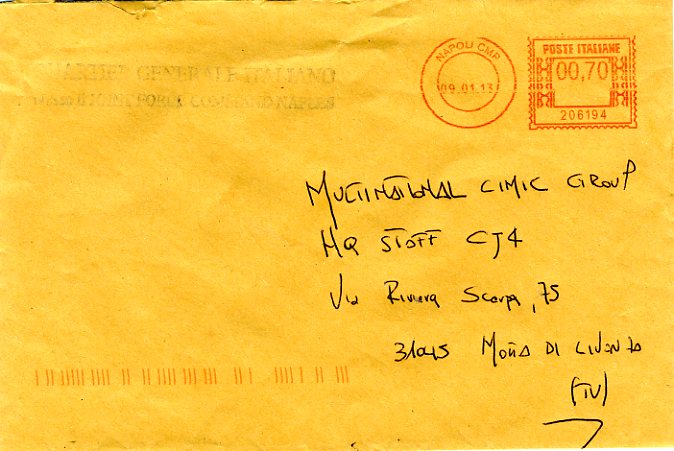 QUARTIER GENERALE ITALIANO
JOINT FORCE COMMAND NAPLES
NAPOLI CMP
09.01.13
POSTE ITALIANE
00,70
206194
MULTINATIONAL CIMIC GROUP
HQ STAFF CJ4
Via Riviera Scarpa, 75
31045 MOTTA DI LIVENZA
(TV)